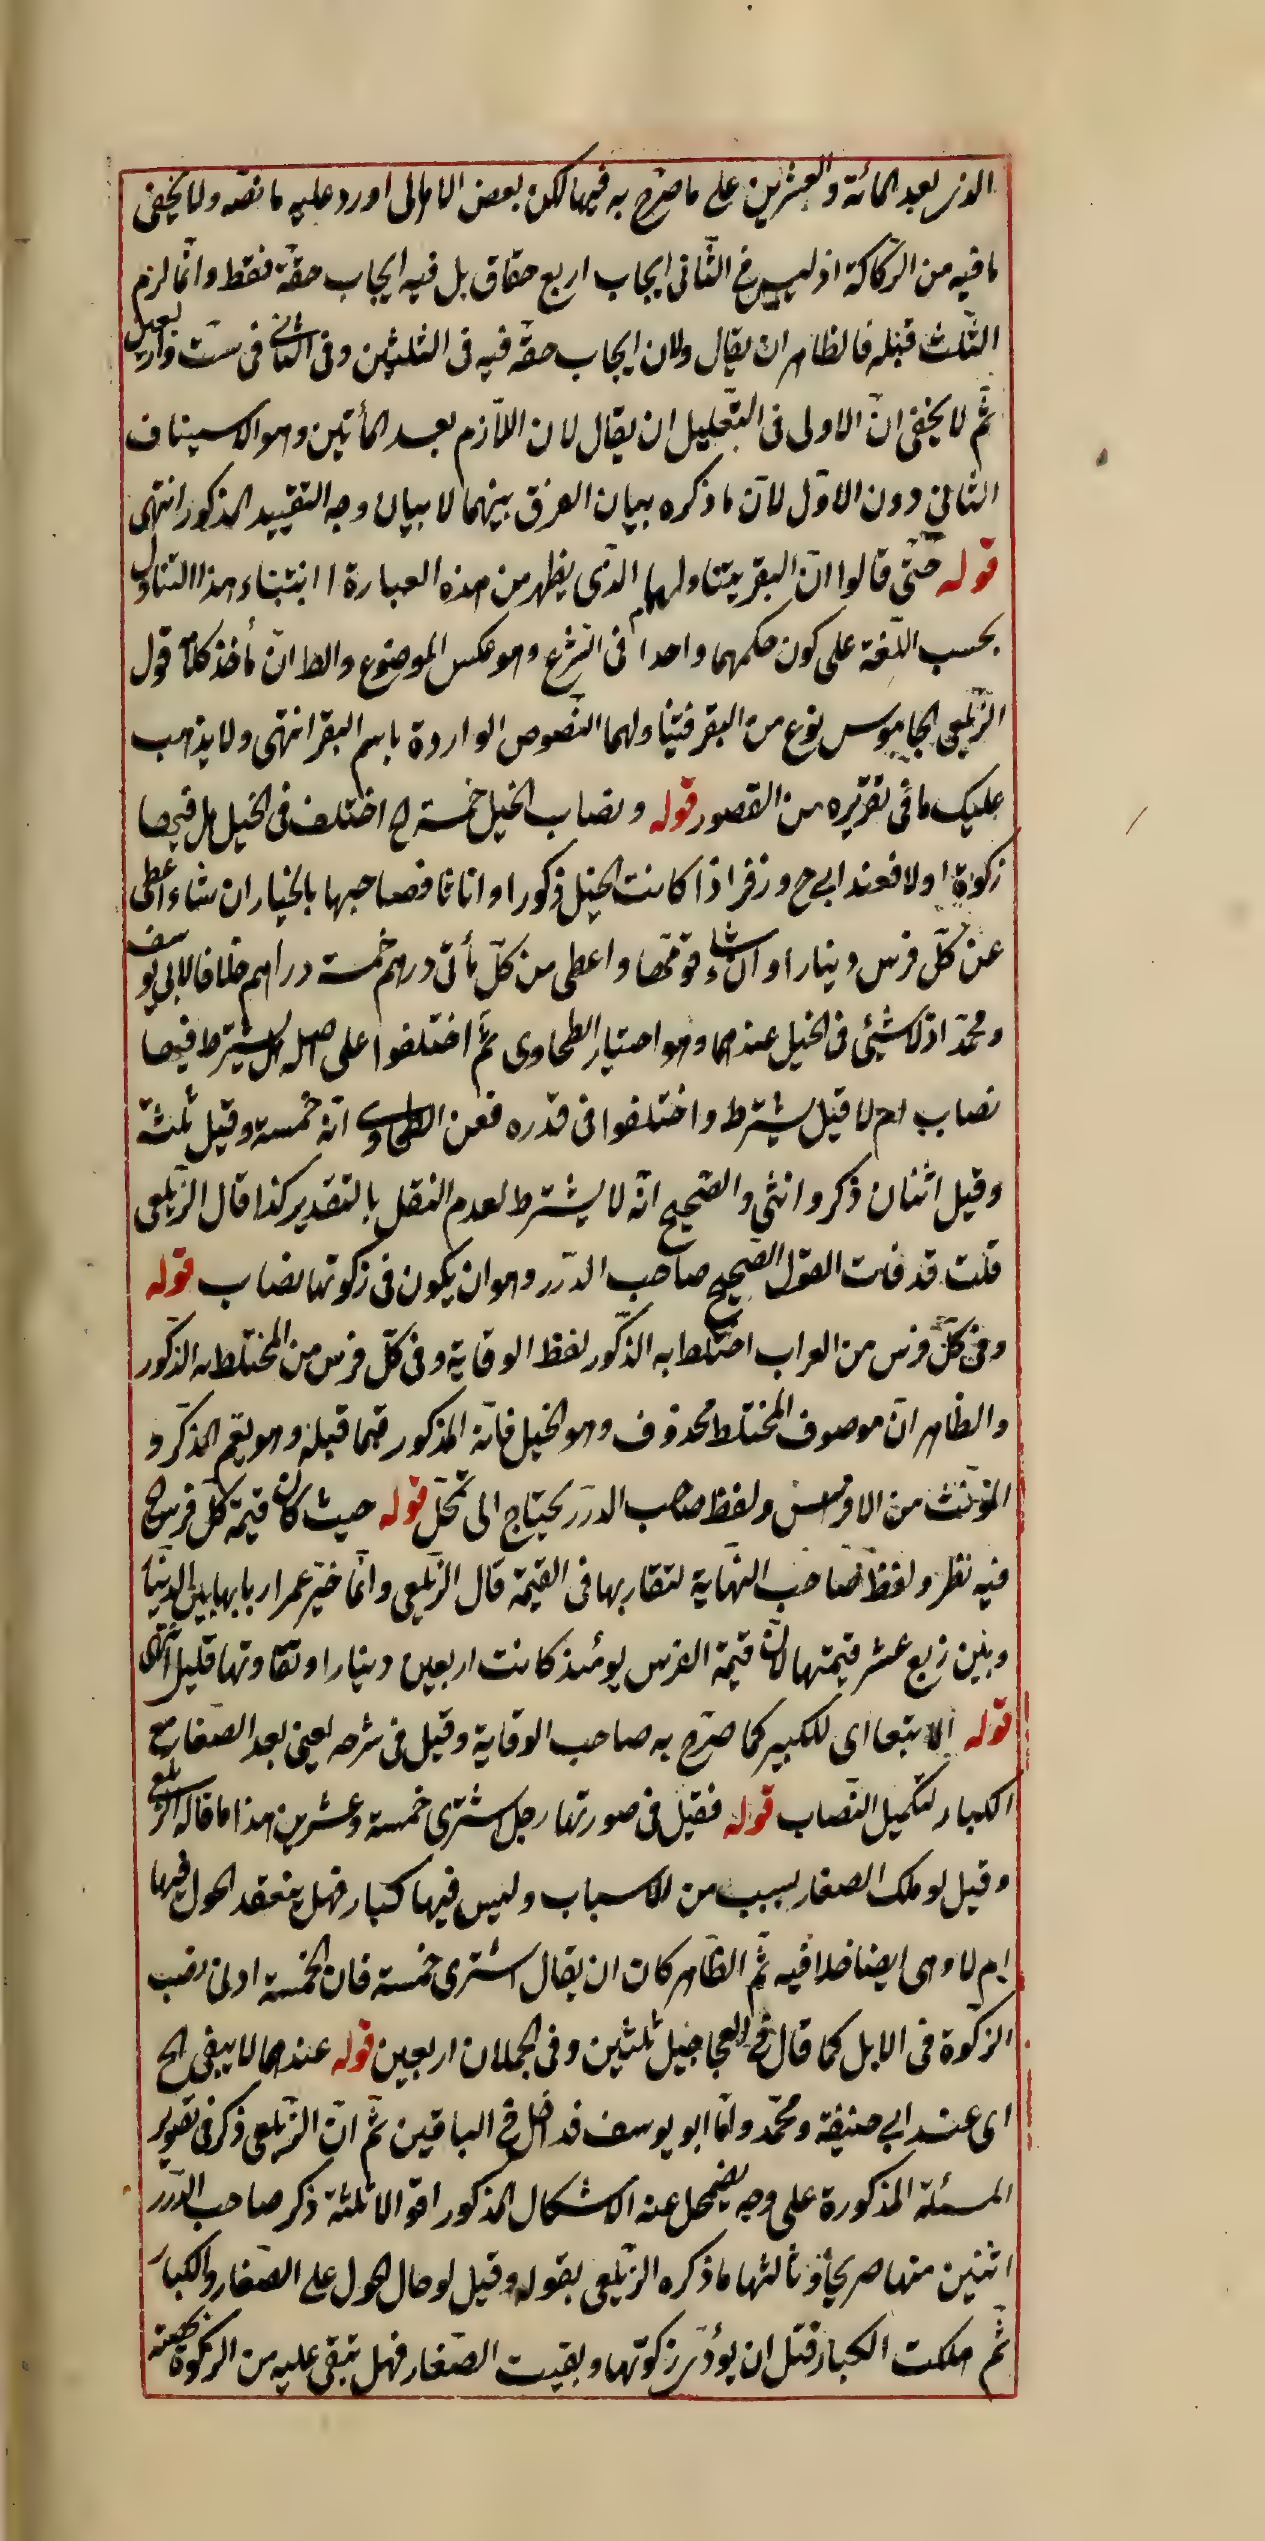 الذى بعد المائة والعشرين على ما صرح به فيها لكن بعض الاهالى اورد عليه ما نصه ولا يخفى
ما فيه من الركاكة اذ ليس فى الثانى ايجاب اربع حقاق بل فيه ايجاب حقة فقط وانما لزم
الثلث قبله فالظاهر ان يقال ولان ايجاب حقه فيه فى الثلثين وفى الثانى فى ست واربعين
ثم لا يخفى ان الاولى فى التعليل ان يقال لان اللازم بعد المأتين وهو الاستيناف
الثانى دون الاول لان ما ذكره بيان الفرق بينهما لا بيان وجه التقييد المذكور انتهى
قوله حتى قالوا ان البقر يتناولهما الذى يظهر من هذه العبارة ابتناء هذا التناول
بحسب اللغة على كون حكمهما واحدا فى الشرع وهو عكس الموضوع والظ ان مأخذ كلامه قول
الزيلعى الجاموس نوع من البقر فيتناولهما النصوص الواردة باسم البقر انتهى ولا يذهب
عليك ما فى تقريره من القصور قوله ونصاب الخيل خمسة الخ اختلف فى الخيل هل فيها
زكوة اولا فعند ابى ح وزفر اذا كانت الخيل ذكورا واناثا فصاحبها بالخيار ان شاء اعطى
عن كل فرس دينارا وان شاء قومها واعطى من كل مأتى درهم خمسة دراهم خلافا لابى يوسف
ومحمد اذ لا شيئى فى الخيل عندهما وهو اختيار الطحاوى ثم اختلفوا على اصله هل يشترط فيها
نصاب ام لا قيل يشترط واختلفوا فى قدره فعن الطحاوى انه خمسة وقيل ثلثة
وقيل اثنان ذكر وانثى والصحيح انه لا يشترط لعدم النقل بالتقدير كذا قال الزيلعى
قلت قد فات القول الصحيح صاحب الدرر وهو ان يكون فى زكوتها نصاب قوله
وفى كل فرس من العراب اختلط به الذكور لفظ الوقاية وفى كل فرس من المختلط به الذكور
والظاهر ان موصوف المختلط محذوف وهو الخيل فانه المذكور فيما قبله وهو يعم المذكر و
المؤنث من الافرس ولفظ صاحب الدرر يحتاج الى تمحل قوله حيث كان قيمة كل فرس الخ
فيه نظر ولفظ صاحب النهاية لتقاربها فى القيمة قال الزيلعى وانما خير عمر اربابها بين الدينار
وبين ربع عشر قيمتها لان قيمة الفرس يومئذ كانت اربعين دينارا وتفاوتها قليل انتهى
قوله الا تبعا اى للكبير كما صرح به صاحب الوقاية وقيل فى شرحه يعنى بعد الصغار مع
الكبار لتكميل النصاب قوله فقيل فى صورتها رجل اشترى خمسة وعشرين هذا ما قاله الزيلعى
وقيل لو ملك الصغار بسبب من الاسباب وليس فيها كبار فهل ينعقد الحول فيها
ام لا وهى ايضا خلافيه ثم الظاهر كان ان يقال اشترى خمسة فان الخمسة ادنى نصب
الزكوة فى الابل كما قال فى العجاجيل ثلثين وفى الحملان اربعين قوله عندهما لا يبقى الخ
اى عند ابى حنيفة ومحمد واما ابو يوسف فداخل فى الباقين ثم ان الزيلعى ذكر فى تصوير
المسئلة المذكورة على وجه يضمحل عنه الاشكال المذكور اقوالا ثلثة ذكر صاحب الدرر
اثنين منها صريحا وثالثها ما ذكره الزيلعى بقوله وقيل لو حال الحول على الصغار والكبار
ثم هلكت الكبار قبل ان يؤدى زكوتها وبقيت الصغار فهل تبقى عليه من الزكوة بحصته